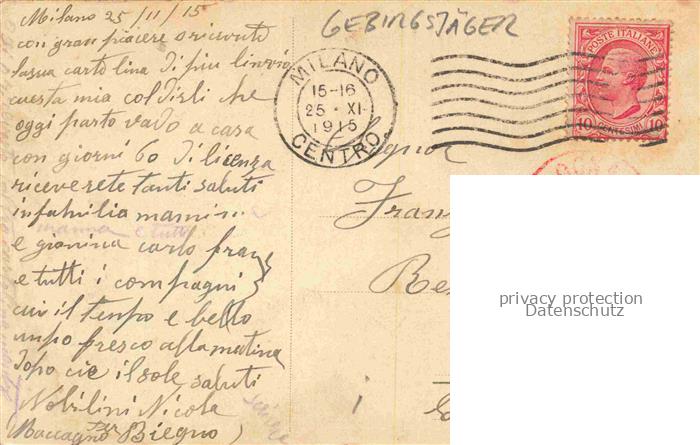 Milano 25/11/15
con gran piacere o ricevuto
la sua cartolina di piu linvio
questa mia col dirti che
oggi parto vado a casa
con giorni 60 di licenza
riceverete tanti saluti
in familia
e gianina carlo fran
e tutti i compagni
cui il tenpo e bello
unpo fresco alla matina
dopo cie il sole saluti
Nobilini Nicola
Biegno)
GEBIRGSJÄGER
MILANO
15-16
25 · XI
1915
CENTRO
POSTE ITALIANE
10 CENTESIMI 10
Signor
Franz
privacy protection
Datenschutz